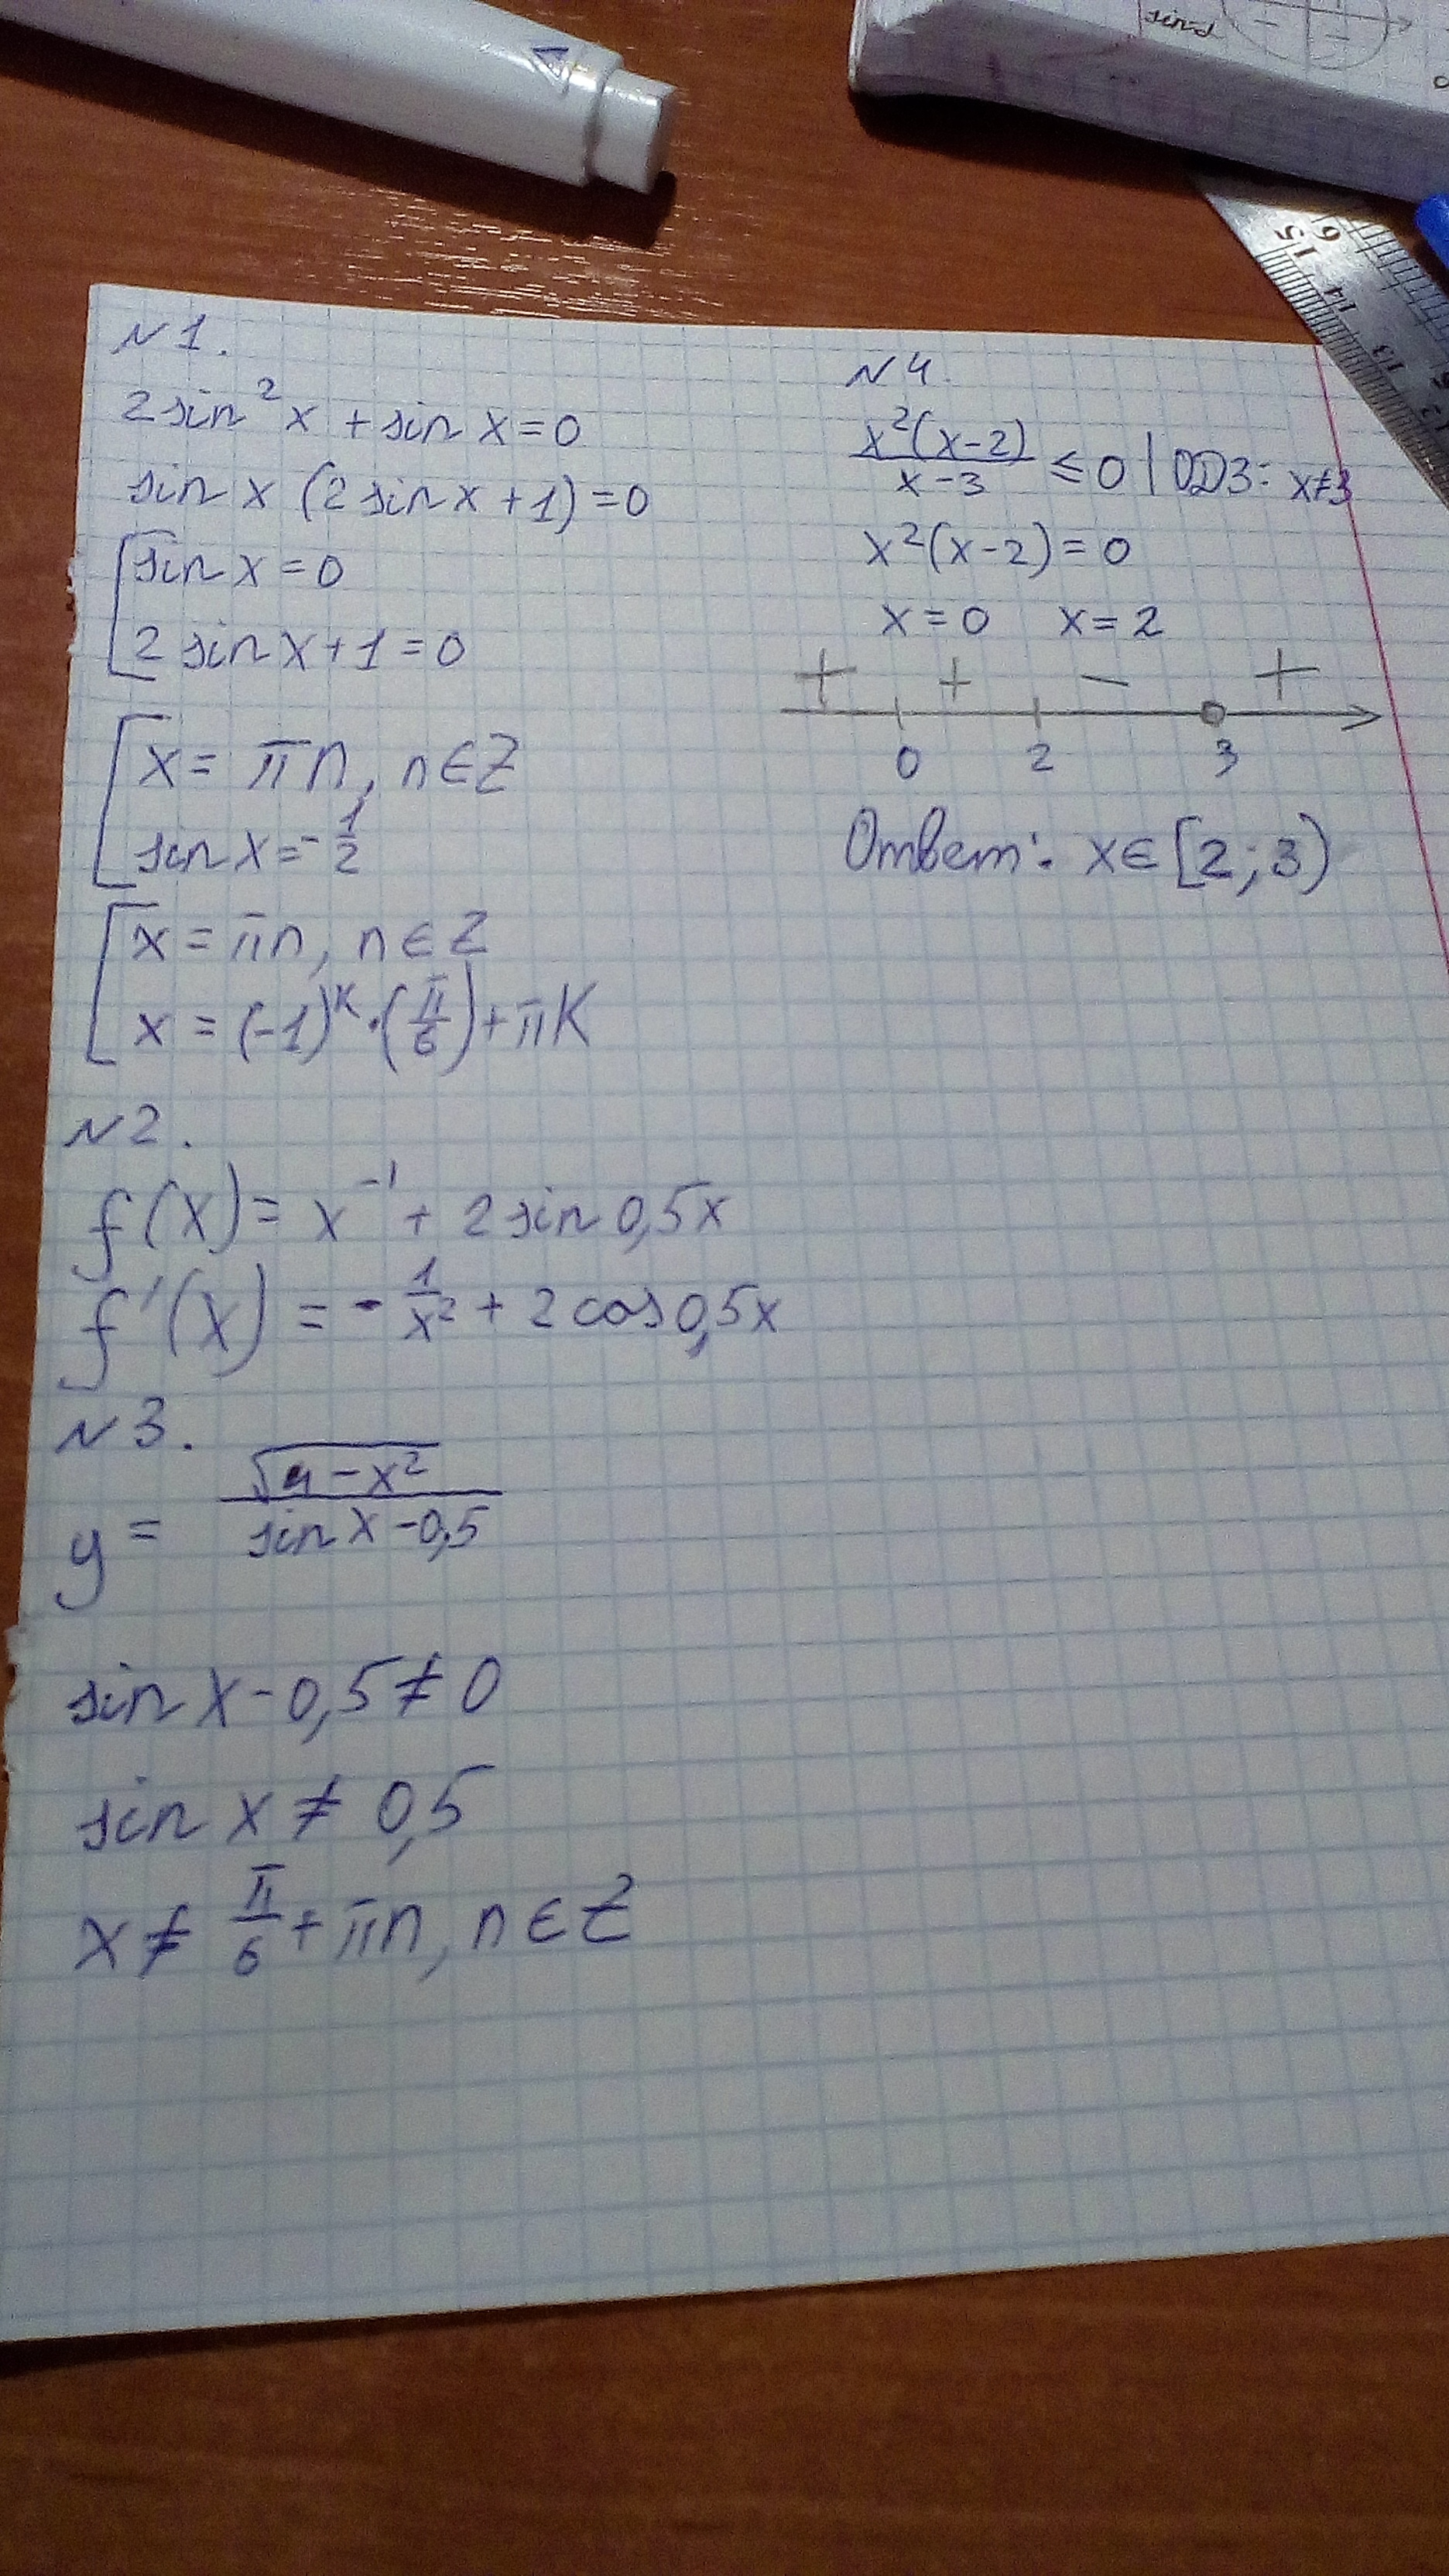 sin α
15
14
13
12
6
5
№1.
2sin²x + sin x = 0
sin x (2 sin x + 1) = 0
sin x = 0
2 sin x + 1 = 0
x = πn, n ∈ Z
sin x = -1/2
x = πn, n ∈ Z
x = (-1)^k · (π/6) + πk
№2.
f(x) = x⁻¹ + 2 sin 0,5x
f'(x) = - 1/x² + 2 cos 0,5x
№3.
y = √(4 - x²) / (sin x - 0,5)
sin x - 0,5 ≠ 0
sin x ≠ 0,5
x ≠ π/6 + πn, n ∈ Z
№4.
x²(x-2) / (x-3) ≤ 0 | ОДЗ: x≠3
x²(x-2) = 0
x = 0 x = 2
+ + - +
0 2 3
Ответ: x ∈ [2; 3)